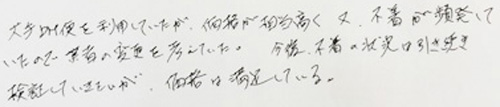 大手の便を利用していたが、価格が相当高く 又、不着が頻発して
いたので業者の変更を考えていた。 今後、不着の状況は引き続き
検証していきたいが、価格は満足している。